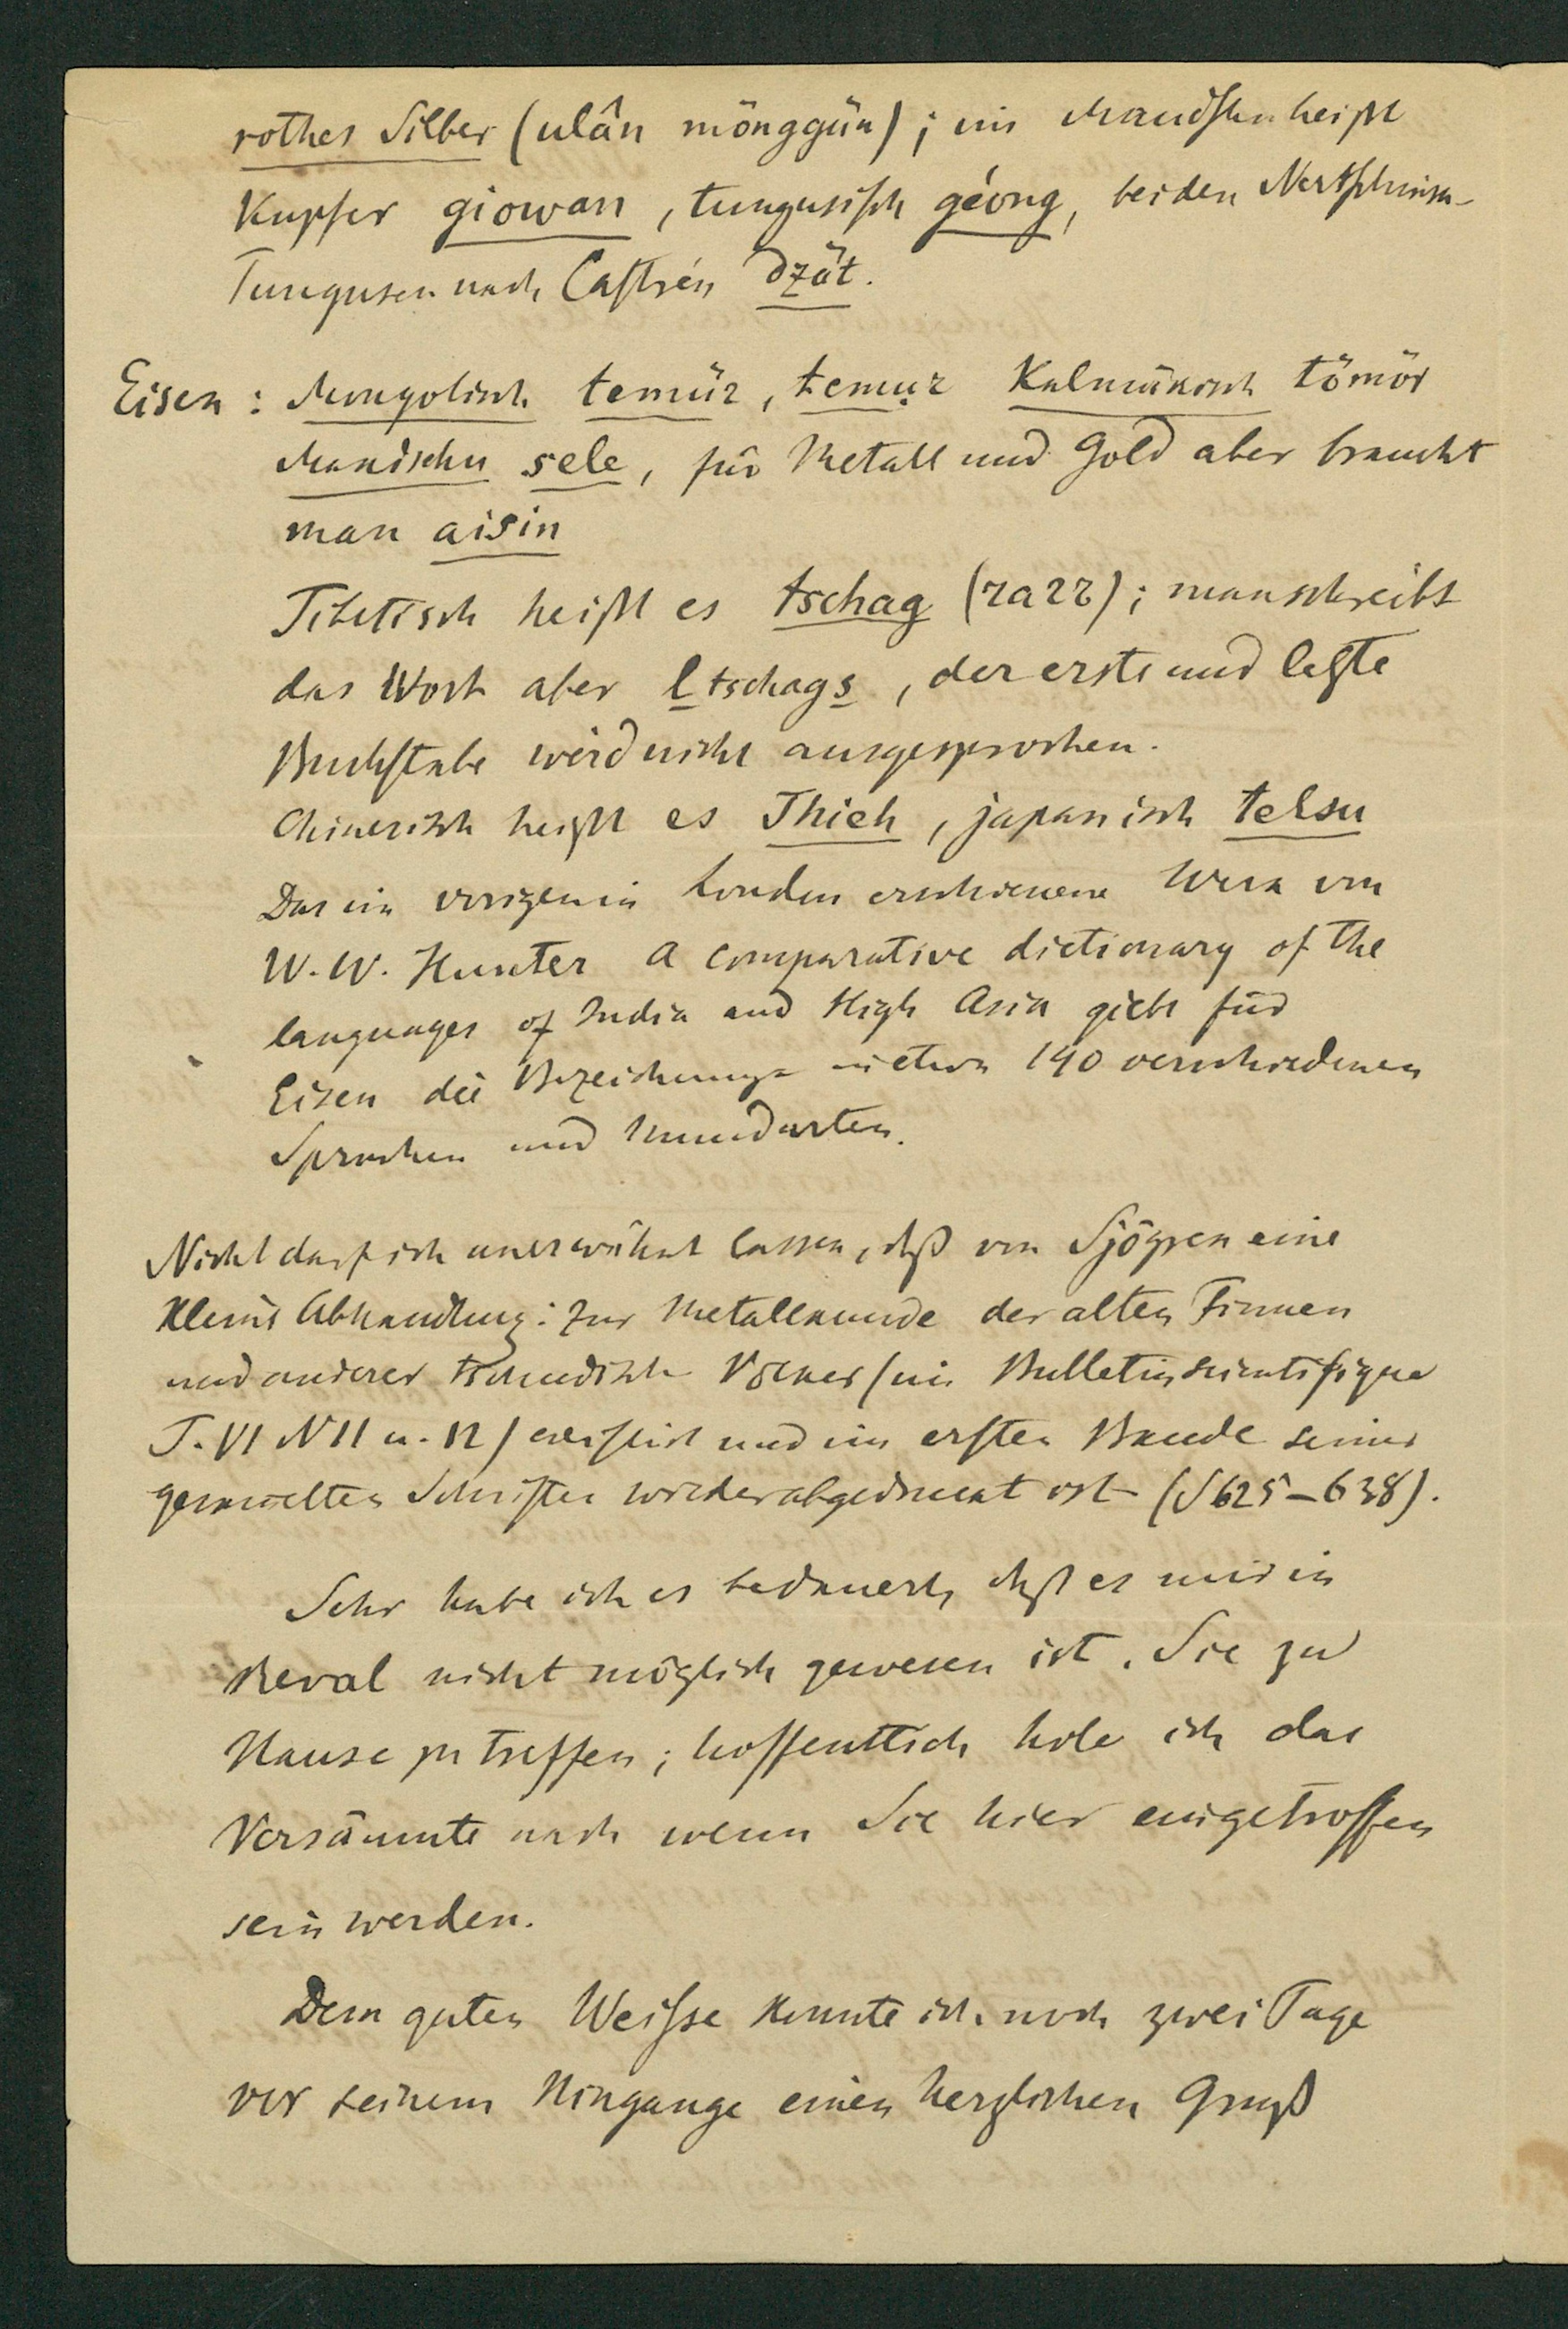 rothes Silber (ulân mönggün); im Mandshu heißt
Kupfer giowan, tungusisch géong, bei den Nertschinsk-
Tungusen nach Castrén dzät.
Eisen: Mongolisch temür, temur Kalmükisch tömör
Mandschu sele, für Metall und Gold aber braucht
man aisin
Tibetisch heißt es tschag (чагъ); man schreibt
das Wort aber ltschags, der erste und letzte
Buchstabe wird nicht ausgesprochen.
Chinesisch heißt es Thieh, japanisch telsu
Das im vorigen in London erschienene Werk von
W. W. Hunter A comparative dictionary of the
languages of India and High Asia giebt für
Eisen die Bezeichnung in etwa 140 verschiedenen
Sprachen und Mundarten.
Nicht darf ich unerwähnt lassen, daß von Sjögren eine
kleine Abhandlung: Zur Metallkunde der alten Finnen
und anderer tschudischer Völker (im Bulletin scientifique
T. VI N 11 u. 12) existirt und im ersten Bande seiner
gesammelten Schriften wiederabgedruckt ist (S 625–638).
Sehr habe ich es bedauert, daß es mir in
Reval nicht möglich gewesen ist, Sie zu
Hause zu treffen; hoffentlich hole ich das
Versäumte nach wenn Sie hier eingetroffen
sein werden.
Dem guten Weisse konnte ich noch zwei Tage
vor seinem Hingange einen herzlichen Gruß